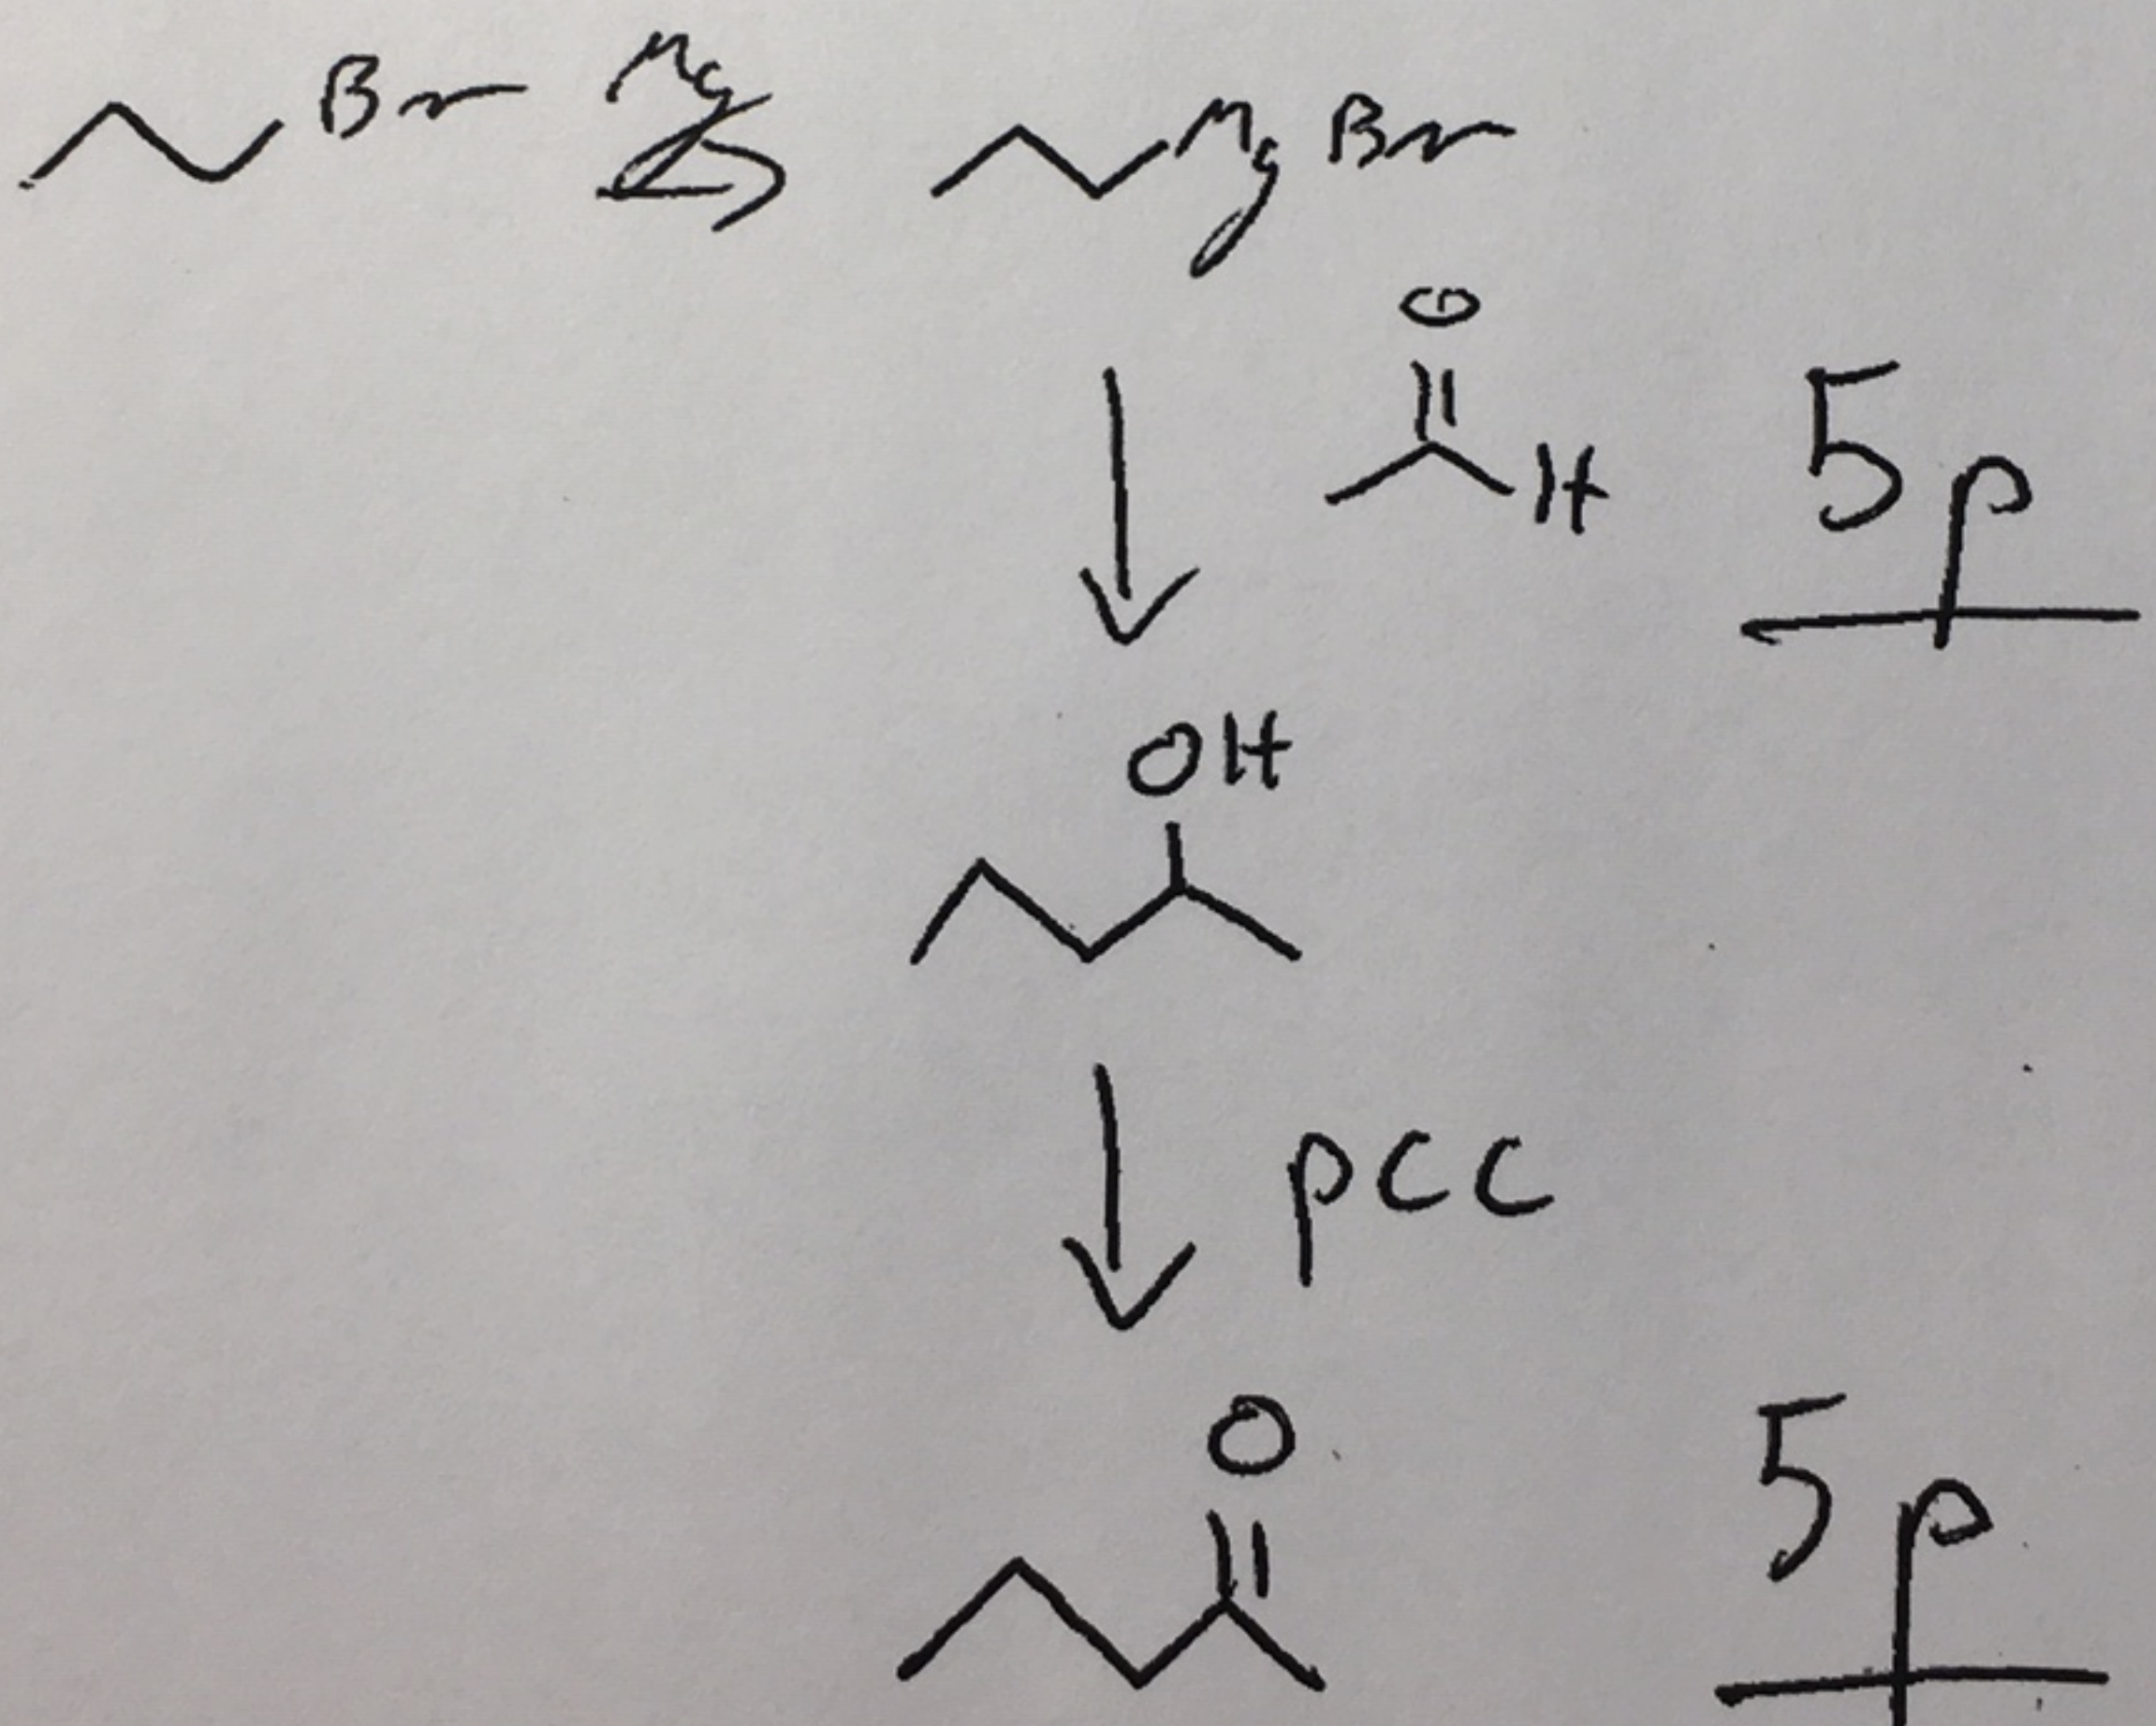 Br Mg MgBr
O
H 5p
OH
pcc
O
5p